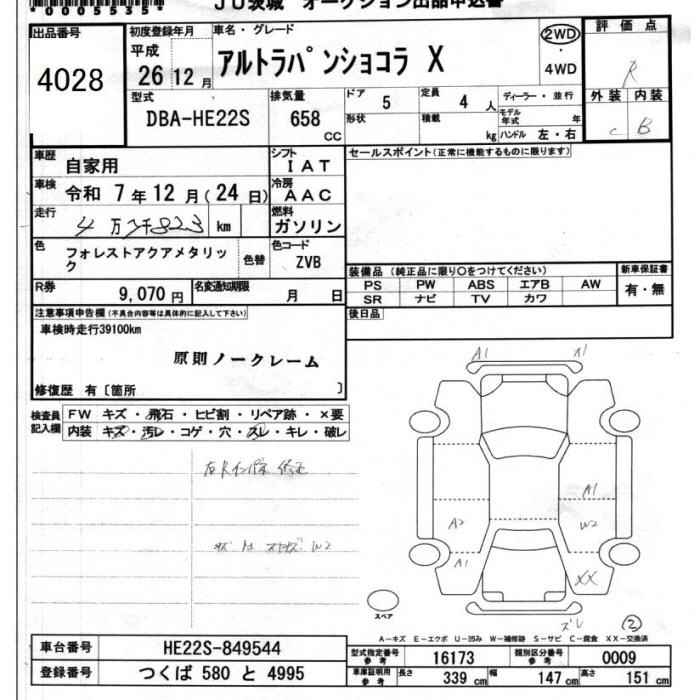 *0005535*
JU茨城 オークション出品申込書
出品番号 4028
初度登録年月 平成 26 12月
車名・グレード アルトラパンショコラ X
2WD・4WD
評価点 R
外装 C 内装 B
型式 DBA-HE22S
排気量 658 CC
ドア 5 形状
定員 4 人 積載 kg
ディーラー・並行
モデル年式 年
ハンドル 左・右
車歴 自家用
シフト IAT
セールスポイント(正常に機能するものに限ります)
車検 令和 7年12月(24日)
冷房 AAC
走行 4万 823 km
燃料 ガソリン
色 フォレストアクアメタリック
色替
色コード ZVB
装備品(純正品に限り○をつけてください)
新車保証書
PS PW ABS エアB AW
SR ナビ TV カワ
有・無
R券 9,070円
名変通知期限 月 日
後日品
注意事項申告欄(不具合内容等は具体的に記入して下さい)
車検時走行39100km
原則ノークレーム
修復歴 有〔箇所 〕
検査員記入欄
FW キズ・飛石・ヒビ割・リペア跡・×要
内装 キズ・汚レ・コゲ・穴・スレ・キレ・破レ
A1
A1
A1
A2
W2
A1
XX
スペア
ズレ
②
A-キズ E-エクボ U-凹み W-補修跡 S-サビ C-腐食 XX-交換済
車台番号 HE22S-849544
登録番号 つくば 580 と 4995
型式指定番号 参考 16173
類別区分番号 参考 0009
車庫証明用 参考 長さ 339 cm 幅 147 cm 高さ 151 cm